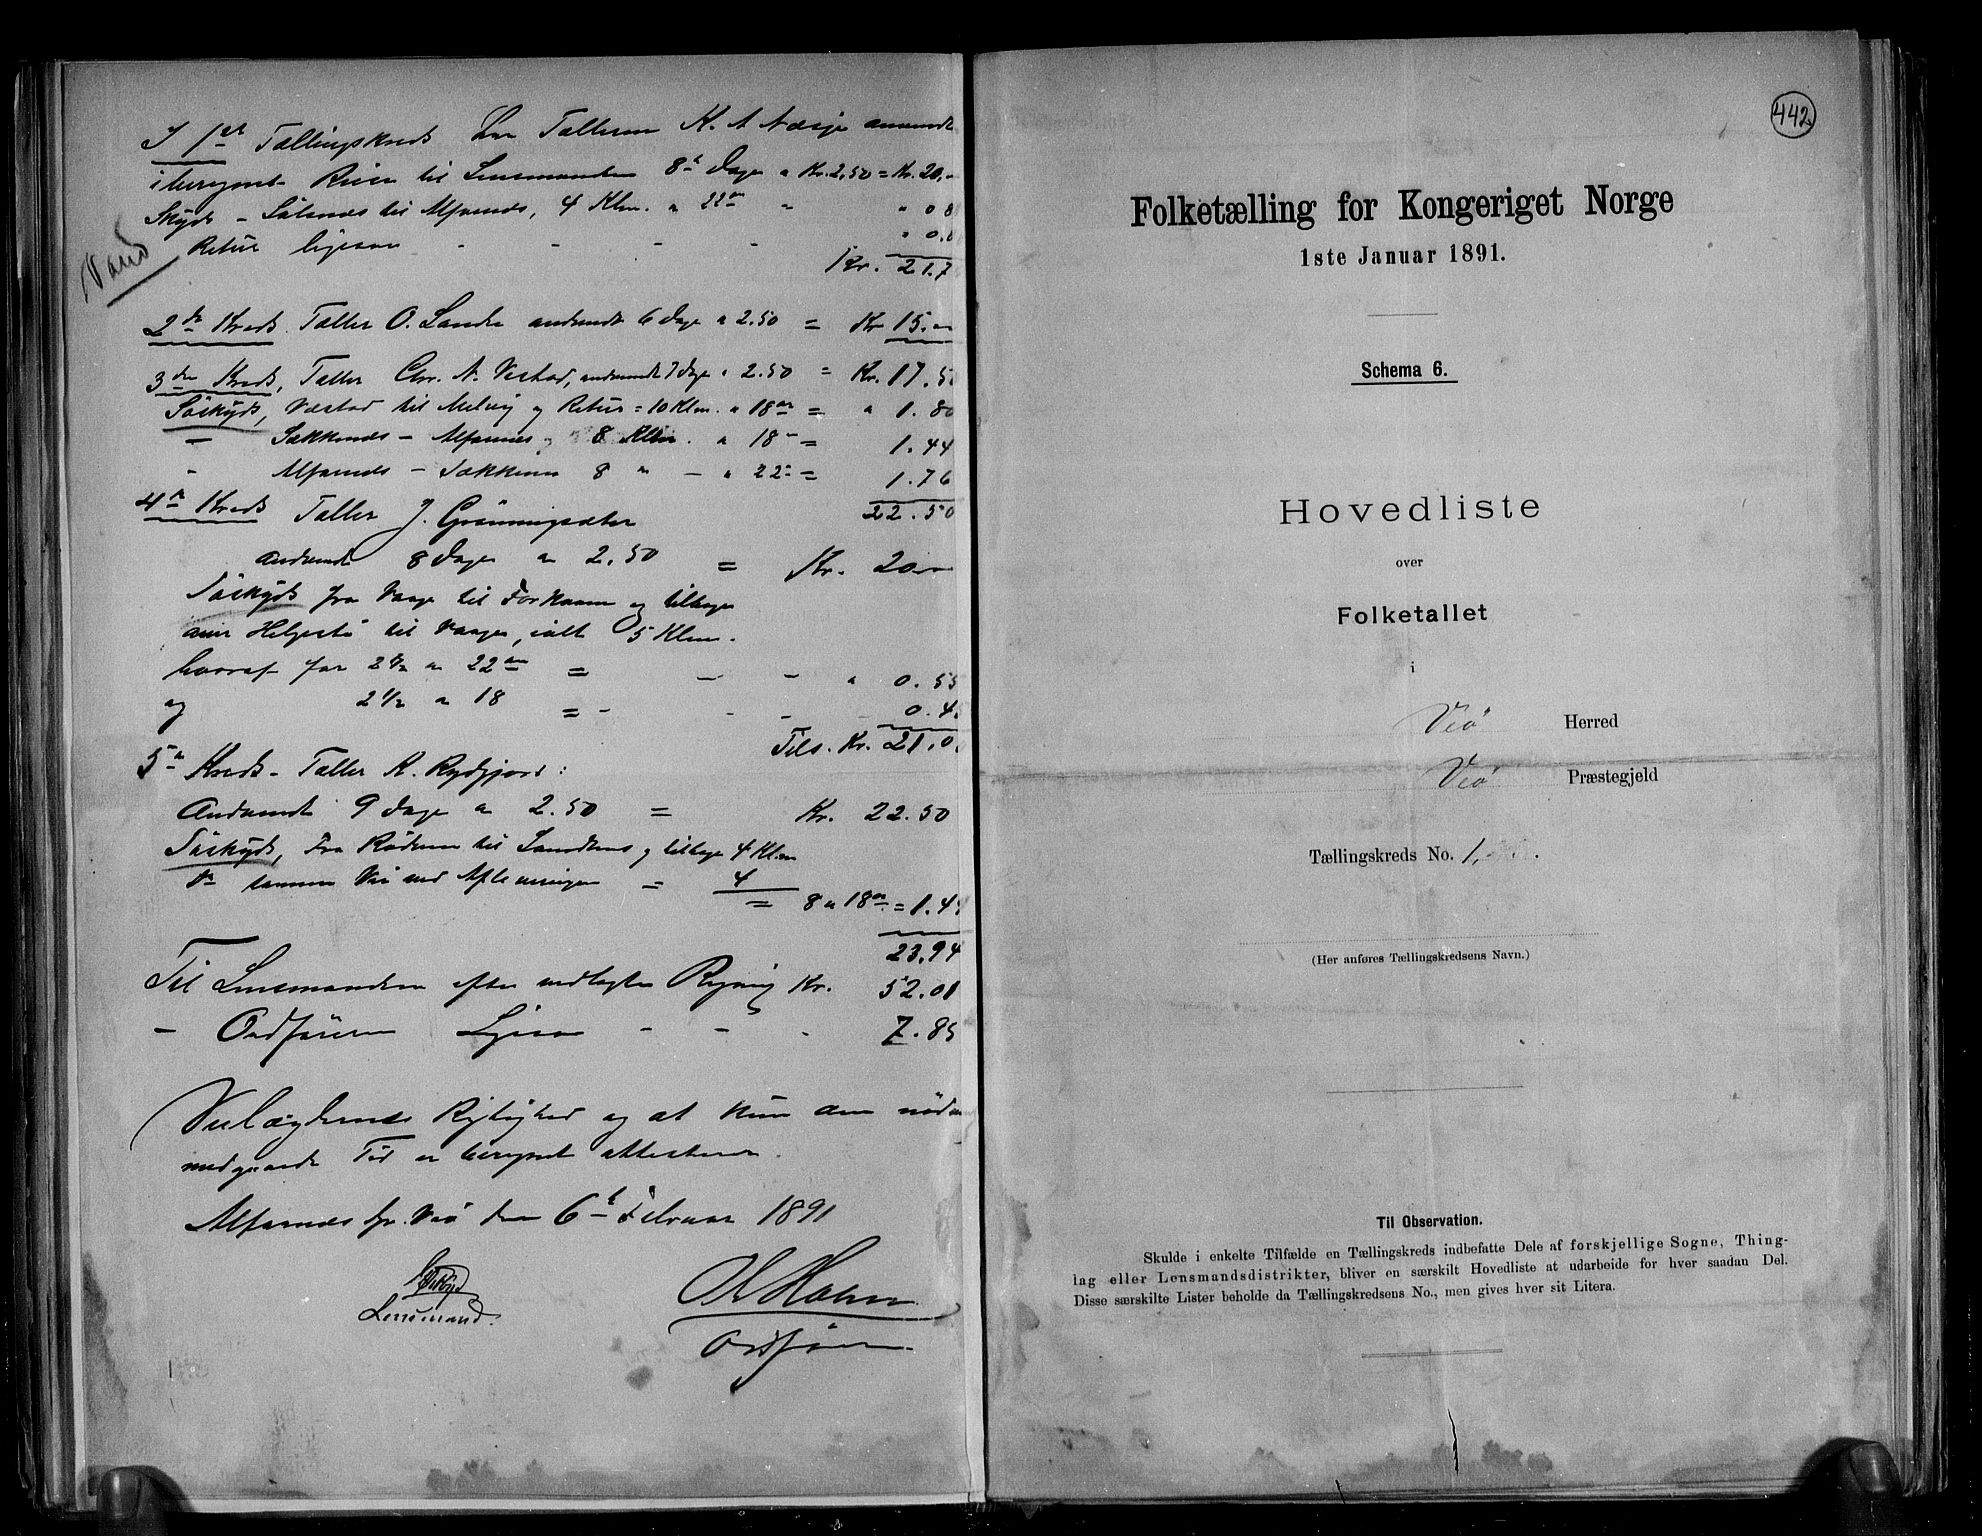 I 1ste Tællingskreds har Tælleren K. A. anvendt
iberegnet Reise til Lensmanden 8te Dage a Kr. 2.50 = Kr. 20,
Skyds – til Alfarnæs, 4 Klm. a 22 " " 0.8
Retur ligesaa - - - - " 0.8
Kr. 21.7
2den Kreds. Tæller O. Sandø anvendt 6 Dage a 2.50 = Kr 15.
3die Kreds, Tæller Chr. A. Vestad, anvendt 7 Dage a 2.50 = Kr. 17.50
Søskyds, Vestad til og Retur = 10 Klm. a 18 øre = " 1.80
– Sækkenæs – Alfarnæs 8 Klm. a 18 = 1.44
- Alfarnæs – Sækkenæs 8 " – " 22 = 1.76
22.50
4de Kreds Tæller J. Grønningsæter
anvendt 8 Dage a 2.50 = Kr. 20
Søskyds fra Vaage til og tilbage
til Vaage, ialt 5 Klm.
hvoraf for 2 1/2 a 22 øre = – - " 0.55
og 2 1/2 a 18 = - - - 0.4
Tils. Kr. 21.0
5te Kreds – Tæller K. Rydgjord:
Anvendt 9 Dage a 2.50 = Kr. 22.50
Søskyds, Fra til og tilbage 4 Klm
Do sammen Veø med Afleveringen = 4
8 a 18 øre = 1.44
23.94
Til Lensmanden efter vedlagte Regning Kr. 52.01
– Ordføreren Ligesaa - - - 7.85
Vand
Rigtighed og at kun den
medgaaede Tid er beregnet attesteres.
Alfarnæs pr. Veø den 6te Februar 1891
Lensmand.
Ordfører.
442
Folketælling for Kongeriget Norge
1ste Januar 1891.
Schema 6.
Hovedliste
over
Folketallet
i
Veø Herred
Veø Præstegjeld
Tællingskreds No. 1,
(Her anføres Tællingskredsens Navn.)
Til Observation.
Skulde i enkelte Tilfælde en Tællingskreds indbefatte Dele af forskjellige Sogne, Thing-
lag eller Lensmandsdistrikter, bliver en særskilt Hovedliste at udarbeide for hver saadan Del.
Disse særskilte Lister beholde da Tællingskredsens No., men gives hver sit Litera.